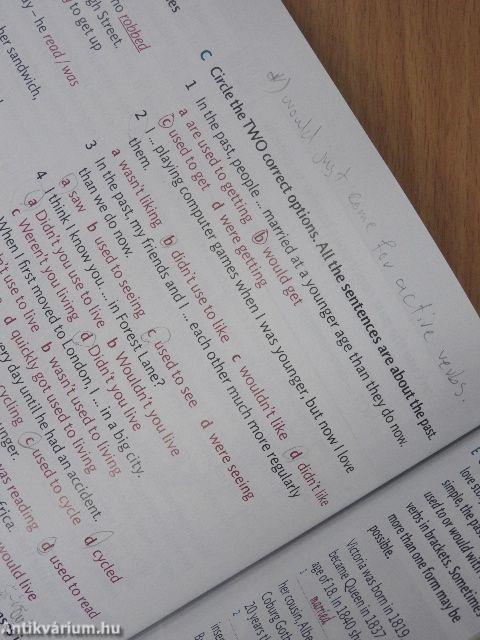 no robbed
gh Street,
to get up
he read / was
her sandwich,
would just came for active verbs.
C Circle the TWO correct options. All the sentences are about the past.
1 In the past, people ... married at a younger age than they do now.
a are used to getting b would get
c used to get d were getting
2 I ... playing computer games when I was younger, but now I love
them.
a wasn't liking b didn't use to like c wouldn't like d didn't like
3 In the past, my friends and I ... each other much more regularly
than we do now.
a saw b used to seeing c used to see d were seeing
4 I think I know you. ... in Forest Lane?
a Didn't you use to live b Wouldn't you live
c Weren't you living d Didn't you live
When I first moved to London, I ... in a big city.
't use to live b wasn't used to living
d quickly got used to living
ery day until he had an accident.
cycling c used to cycle d cycled
unger.
was reading d used to read
frica.
would live
love sto
simple, the pas
used to or would with
verbs in brackets. Sometimes
more than one form may be
possible.
Victoria was born in 1819
became Queen in 1837
age of 18. In 1840 sh
1 married
her cousin, Albe
Coburg Goth
20 years
2
Antikvárium.hu